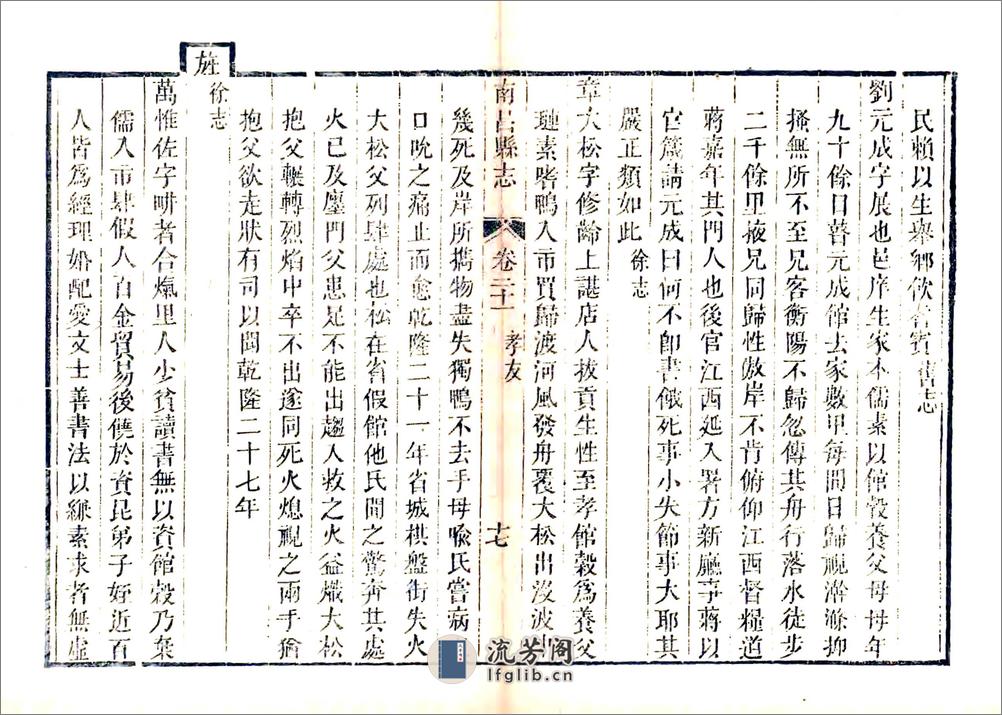 民賴以生舉鄉飲耆賓舊志
劉元成字展也邑庠生家本儒素以館穀養父母母年
九十餘日暮元成館去家數里每間日歸視滌滫抑
搔無所不至兄客衡陽不歸忽傳其舟行落水徒步
二千餘里掖兄同歸性傲岸不肯俯仰江西督糧道
蔣嘉年其門人也後官江西延入署方新廳事蔣以
官箴請元成曰何不卽書餓死事小失節事大耶其
嚴正類如此徐志
章大松字修齡上諶店人拔貢生性至孝館穀爲養父
璉素嗜鴨入市買歸渡河風發舟覆大松出沒波
幾死及岸所攜物盡失獨鴨不去手母喩氏嘗病
口吮之痛止而愈乾隆二十一年省城棋盤街失火
大松父列肆處也松在省假館他氏聞之驚奔其處
火已及廛門父患足不能出趨入救之火益熾大松
抱父輾轉烈焰中卒不出遂同死火熄視之兩手猶
抱父欲走狀有司以聞乾隆二十七年
旌
徐志
萬惟佐字畊者合熂里人少貧讀書無以資館穀乃棄
儒入市肆假人百金貿易後僥於資昆弟子姪近百
人皆爲經理婚配愛文士善書法以縑素求者無虛
南昌縣志
卷三十一
孝友
十七
流芳阁
lfglib.cn